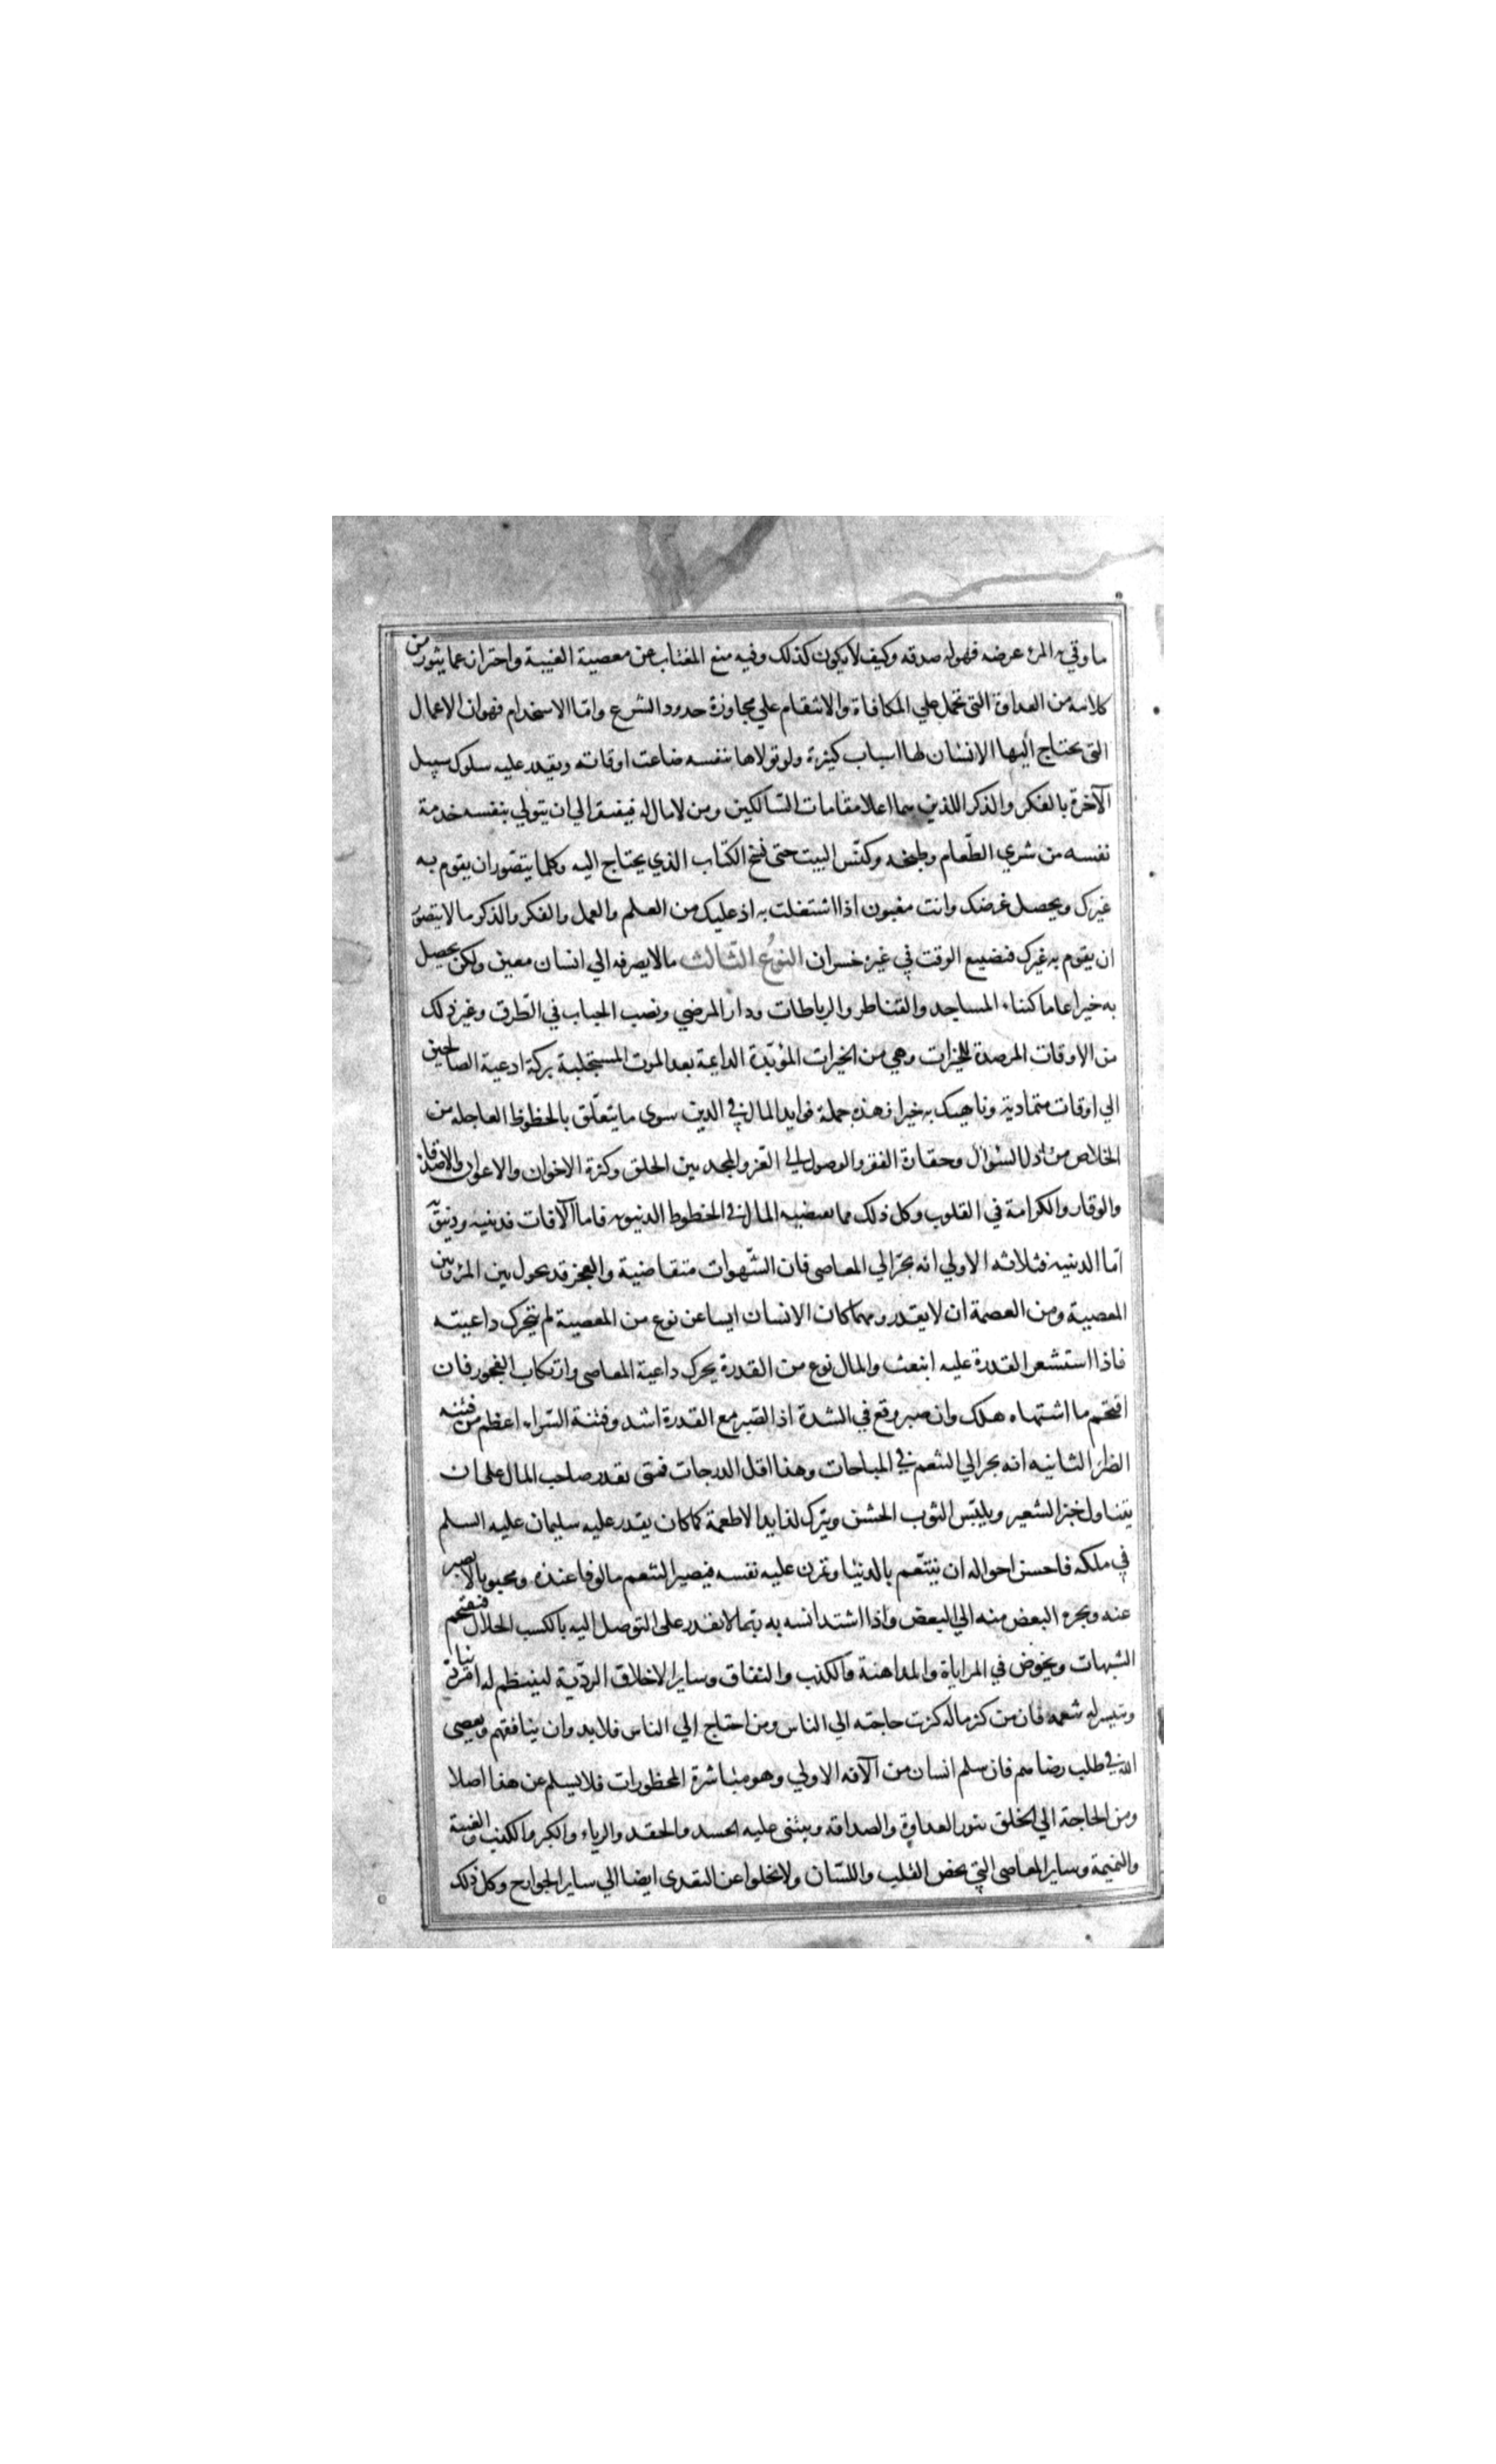 ما وقي به المرء عرضه فهو له صدقه وكيف لا يكون كذلك وفيه منع المغتاب عن معصية الغيبة واحتراز عما يثور من
كلامه من العداوة التي تحمل علي المكافاة والانتقام علي مجاوزة حدود الشرع وامّا الاستخدام فهو ان الاعمال
التي يحتاج اليها الانسان لها اسباب كثيرة ولو تولاها بنفسه ضاعت اوقاته ويقدر عليه سلوك سبيل
الآخرة بالفكر والذكر اللذين هما اعلا مقامات السّالكين ومن لا مال له فيفتقر الي ان يتولي بنفسه خدمة
نفسه من شري الطّعام وطبخه وكنس البيت حتى نسخ الكتاب الذي يحتاج اليه وكلما يتصّور ان يقوم به
غيرك ويحصل غرضك وانت مغبون اذا اشتغلت به اذ عليك من العلم والعمل والفكر والذكر ما لا يتصوّر
ان يقوم به غيرك فتضييع الوقت في غيره خسران النوعُ الثّالث ما لا يصرفه الي انسان معين ولكن يحصل
به خيرا عاما كبناء المساجد والقناطر والرباطات ودار المرضي ونصب الجباب في الطّرق وغير ذلك
من الاوقاف المرصدة للخيرات وهي من الخيرات المؤبّدة الدايمة بعد الموت المستجلبة بركة ادعية الصالحين
الي اوقات متمادية وناهيك به خيرا فهذه جملة فوايد المال في الدين سوى ما يتعلّق بالحظوظ العاجلة من
الخلاص من ذل السّؤال وحقارة الفقر والوصول الي العّز والمجد بين الخلق وكثرة الاخوان والاعوان والاصدقاء
والوقار والكرامة في القلوب وكل ذلك مما المال في الحظوظ الدنيويه فاما الآفات فدينيه ودنيويّه
امّا الدينيه فثلاثه الاولي انه يجرّ الي المعاصى فان الشّهوات متقاضية والعجز قد يحول بين المرء وبين
المعصية ومن العصمة ان لا يقدر ومهما كان الانسان ايسا عن نوع من المعصية لم يتحرك داعيته
فاذا استشعر القدرة عليه ابنعث والمال نوع من القدرة يحرك داعية المعاصى وارتكاب الفجور فان
اقتحم ما اشتهاه هلك وان صبر وقع في الشدة اذ الصّبر مع القدرة اشد وفتنة السّراء اعظم من فتنه
الضراء الثانيه انه يجر الي التنعم في المباحات وهذا اقل الدرجات فمتى يقدر صاحب المال على ان
يتناول خبز الشعير ويلبّس الثوب الخشن ويترك لذايد الاطعمة كما كان يقدر عليه سليمان عليه السلم
في ملكه فاحسن احواله ان يتنّعم بالدنيا وتمرن عليه نفسه فيصير التنعم مالوفا عنده ومحبوبا لا يصبر
عنه ويجره البعض منه الي البعض واذا اشتد انسه به ربّما لا يقدر على التوصل اليه بالكسب الحلال فيقتحم
الشبهات ويخوض في المراياة والمداهنة والكذب والنفاق وساير الاخلاق الردّية لينتظم له امر دنياه
ويتيسر له تنعمه فان من كثر ماله كثرت حاجته الي الناس ومن احتاج الي الناس فلا بد وان ينافقهم ويعصى
الله في طلب رضاهم فان سلم انسان من الآفه الاولي وهو مباشرة المحظورات فلا يسلم عن هذا اصلا
ومن الحاجة الي الخلق يثور العداوة والصداقه ويبتنى عليه الحسد والحقد والرياء والكبر والكذب والغيبة
والنميمة وساير المعاصى التي يخص القلب واللسّان ولا يخلوا عن التعدى ايضا الي ساير الجوارح وكل ذلك